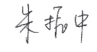 朱振中